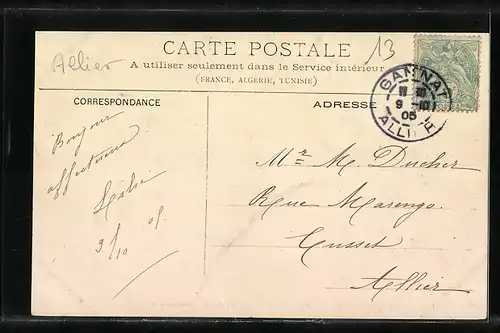 Allier
13
CARTE POSTALE
A utiliser seulement dans le Service intérieur
(FRANCE, ALGERIE, TUNISIE)
CORRESPONDANCE
ADRESSE
GANNAT
9 -10
05
ALLIER
Bonjour
affectueux
9/10 05
Mr M. Ducher
Rue Marengo
Cusset
Allier